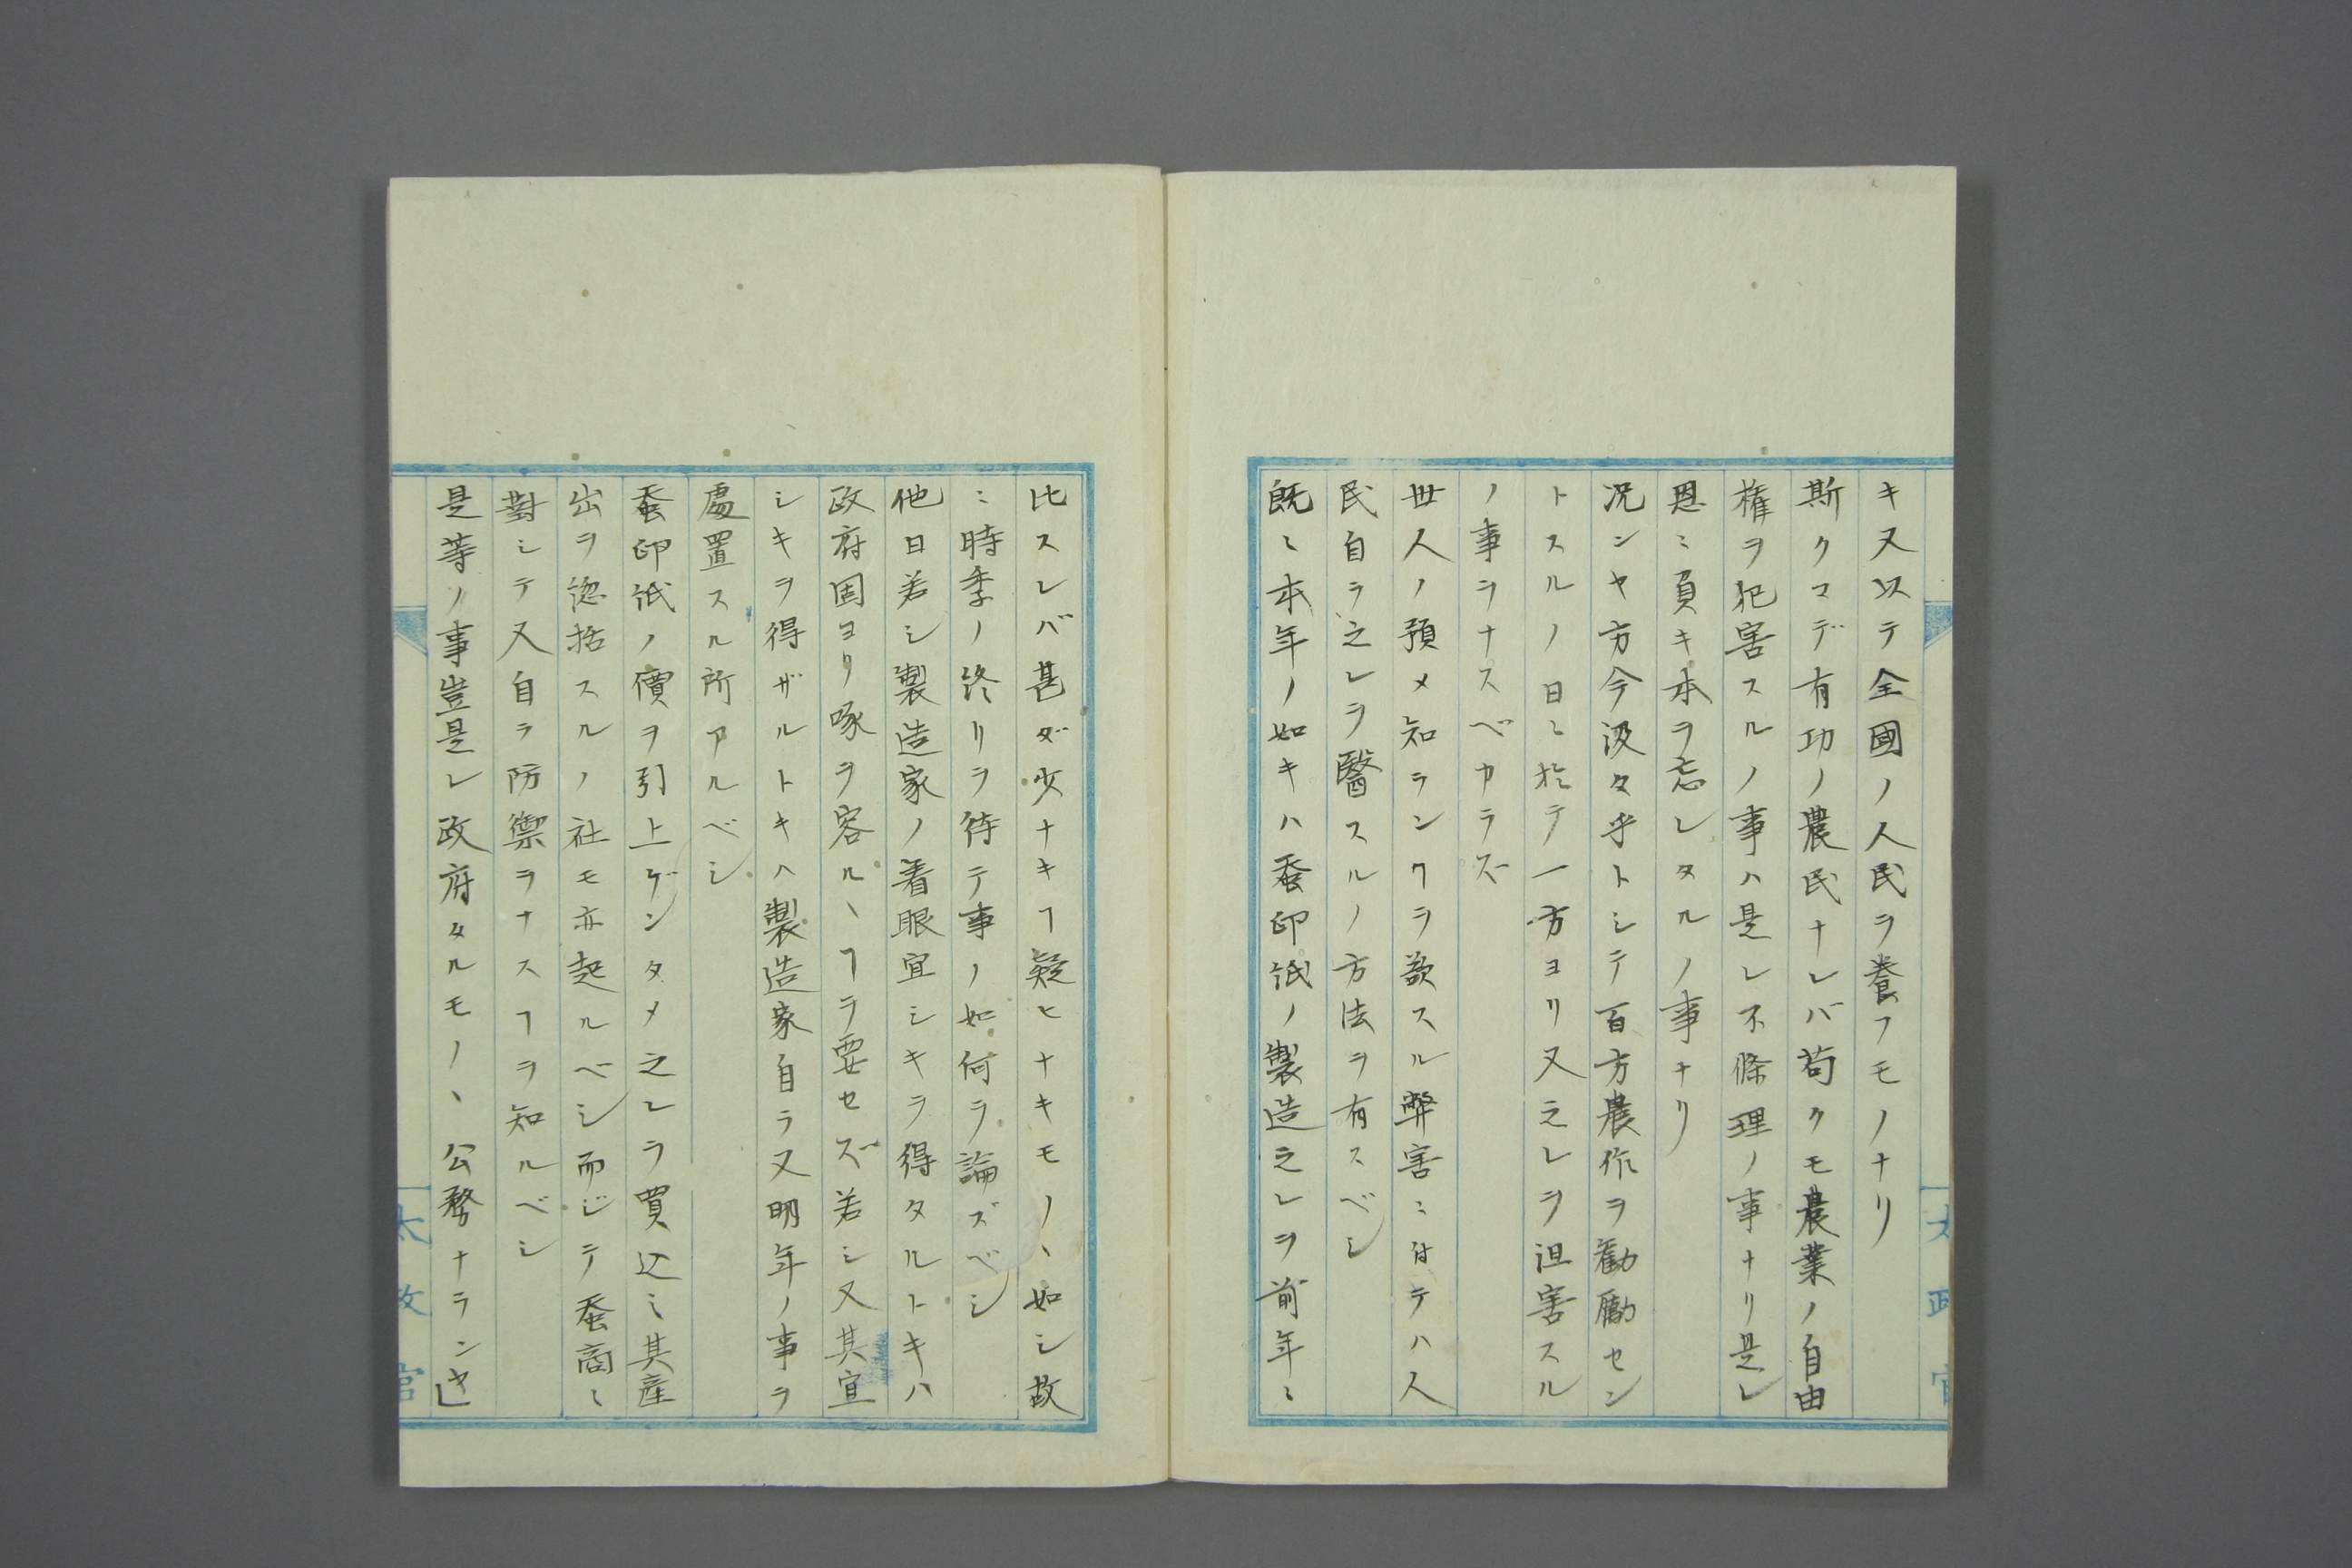 キ又以テ全國ノ人民ヲ養フモノナリ
斯クマデ有功ノ農民ナレバ苟クモ農業ノ自由
権ヲ犯害スルノ事ハ是レ不條理ノ事ナリ是レ
恩ニ負キ本ヲ忘レタルノ事ナリ
况ンヤ方今汲々乎トシテ百方農作ヲ勸勵セン
トスルノ日ニ於テ一方ヨリ又之レヲ沮害スル
ノ事ヲナスベカラズ
世人ノ預メ知ランヿヲ欲スル弊害ニ付テハ人
民自ラ之レヲ醫スルノ方法ヲ有スベシ
既ニ本年ノ如キハ蚕卵紙ノ製造之レヲ前年ニ
太政官
比スレバ甚ダ少ナキヿ疑ヒナキモノヽ如シ故
ニ時季ノ終リヲ待テ事ノ如何ヲ論ズベシ
他日若シ製造家ノ着眼宜シキヲ得タルトキハ
政府固ヨリ喙ヲ容ルヽヿヲ要セズ若シ又其宜
シキヲ得ザルトキハ製造家自ラ又明年ノ事ヲ
處置スル所アルベシ
蚕卵紙ノ價ヲ引上ゲンタメ之レヲ買込ミ其産
出ヲ惣括スルノ社モ亦起ルベシ而シテ蚕商ニ
對シテ又自ラ防禦ヲナスヿヲ知ルベシ
是等ノ事豈是レ政府タルモノヽ公務ナランヤ
太政官